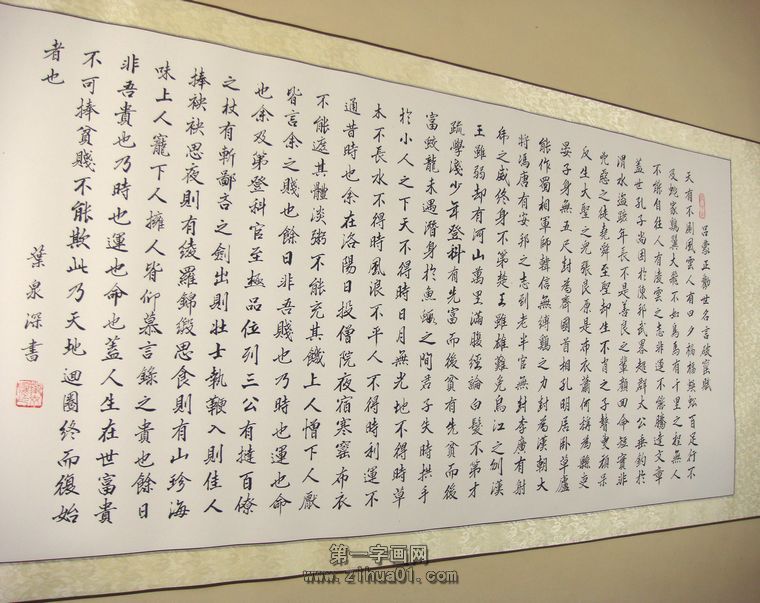 呂蒙正勸世名言破窰賦
天有不測風雲人有旦夕禍福蜈蚣百足行不
及蛇家鷄翼大飛不如鳥馬有千里之程無人
不能自往人有凌雲之志非運不能騰達文章
蓋世孔子尚困於陳邦武畧超群太公垂釣於
渭水盗跖年長不是善良之輩顏回命短實非
兇惡之徒堯舜至聖却生不肖之子瞽叟頑呆
反生大聖之兒張良原是布衣蕭何稱為縣吏
晏子身無五尺封為齊國首相孔明居卧草廬
能作蜀相軍師韓信無縛鷄之力封為漢朝大
將馮唐有安邦之志到老半官無封李廣有射
虎之威終身不第楚王雖雄難免烏江之刎漢
王雖弱却有河山萬里滿腹經論白髮不第才
疏學淺少年登科有先富而後貧有先貧而後
富蛟龍未遇潛身於魚蝦之間君子失時拱手
於小人之下天不得時日月無光地不得時草
木不長水不得時風浪不平人不得時利運不
通昔時也余在洛陽日投僧院夜宿寒窰布衣
不能遮其體淡粥不能充其饑上人憎下人厭
皆言余之賤也餘日非吾賤也乃時也運也命
也余及弟登科官至極品位列三公有撻百僚
之杖有斬鄙吝之劍出則壯士執鞭入則佳人
捧袂思夜則有綾羅錦緞思食則有山珍海
味上人寵下人擁人皆仰慕言錄之貴也餘日
非吾貴也乃時也運也命也蓋人生在世富貴
不可捧貧賤不能欺此乃天地迴圈終而復始
者也
葉泉深書
第一字画网
www.zihua01.com